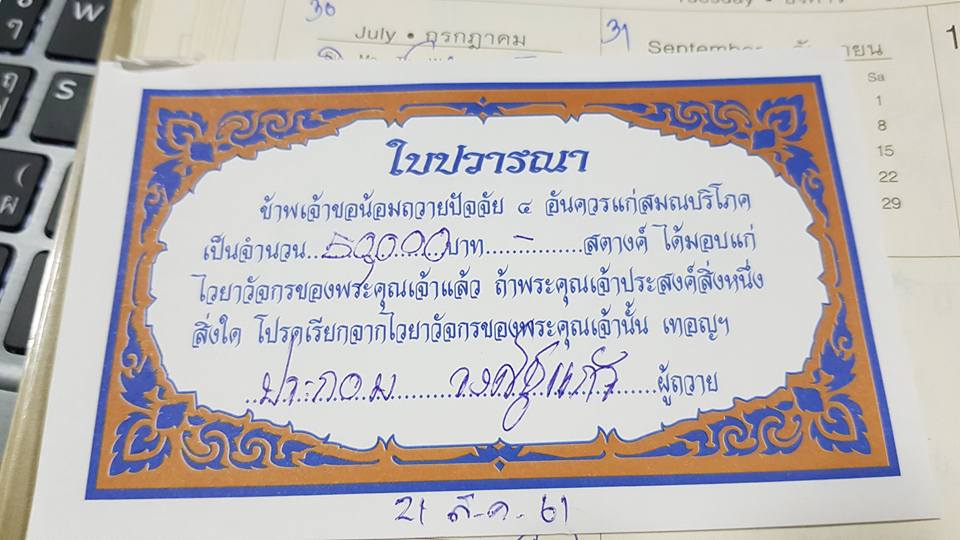 30
July • กรกฎาคม
31
September
ยน
Sa
1
8
15
22
29
1
W
S
ใบปวารณา
ข้าพเจ้าขอน้อมถวายปัจจัย ๔ อันควรแก่สมณบริโภค
เป็นจำนวน..50,000..บาท....-..........สตางค์ ได้มอบแก่
ไวยาวัจกรของพระคุณเจ้าแล้ว ถ้าพระคุณเจ้าประสงค์สิ่งหนึ่ง
สิ่งใด โปรดเรียกจากไวยาวัจกรของพระคุณเจ้านั้น เทอญฯ
ผู้ถวาย
21 ส.ค. 61